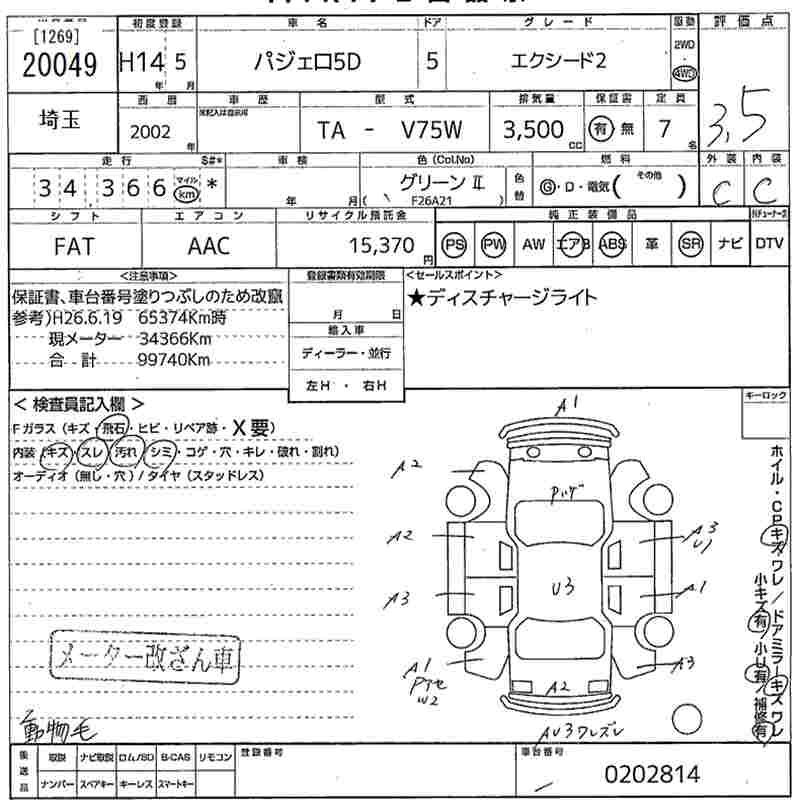 車名 ドア グレード 駆動 評価点
[1269] 初度登録 2WD
20049 H14 5 パジェロ5D 5 エクシード2 4WD
年 月
埼玉 西暦 車歴 型式 排気量 保証書 定員 3,5
2002 年 TA - V75W 3,500 cc 有 無 7 名
走行 $#* 車検 色(Col.No) 燃料 外装 内装
34 366 マイル km * 年 月 グリーンⅡ 色替 G・D・電気( その他 ) C C
( F26A21 )
シフト エアコン リサイクル預託金 純正装備品
FAT AAC 15,370 円 PS PW AW エアB ABS 革 SR ナビ DTV
<注意事項> 登録書類有効期限 <セールスポイント>
保証書、車台番号塗りつぶしのため改竄 ★ディスチャージライト
参考)H26.6.19 65374Km時 月 日
現メーター 34366Km 輸入車
合 計 99740Km ディーラー・並行
左H ・ 右H
< 検査員記入欄 > キーロック
Fガラス(キズ・飛石・ヒビ・リペア跡・X要)
内装(キズ・スレ・汚れ・シミ・コゲ・穴・キレ・破れ・割れ)
オーディオ(無し・穴)/タイヤ(スタッドレス)
A1
A2
Pハゲ
A2 A3
U1
A3 U3 A1
A1 A3
W2 A2
AU3ワレズレ
ホイル・CPキズワレ/ドアミラーキズワレ
小キズ有/小U有/補修有
メーター改ざん車
動物毛
後送品 取説 ナビ取説 ロム/SD B-CAS リモコン 登録番号 車台番号
ナンバー スペアキー キーレス スマートキー 0202814